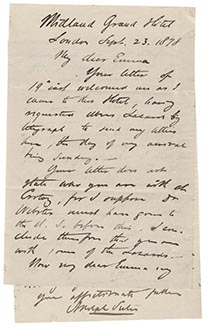 Midland Grand Hotel
London Sept. 23. 1878
My dear Emma
Your letter of
19th inst welcomed me as I
came to this Hotel, having
requested Messrs Lazards by
telegraph to send my letters
here, the day of my arrival
being Sunday. —
Your letter does not
state was you are with the
for I suppose Dr
Webster must have gone to
the U. S. before this. I con
clude therefore that you are
with some of the
Now my dear Emma my
Your affectionate father
Adolph Sutro